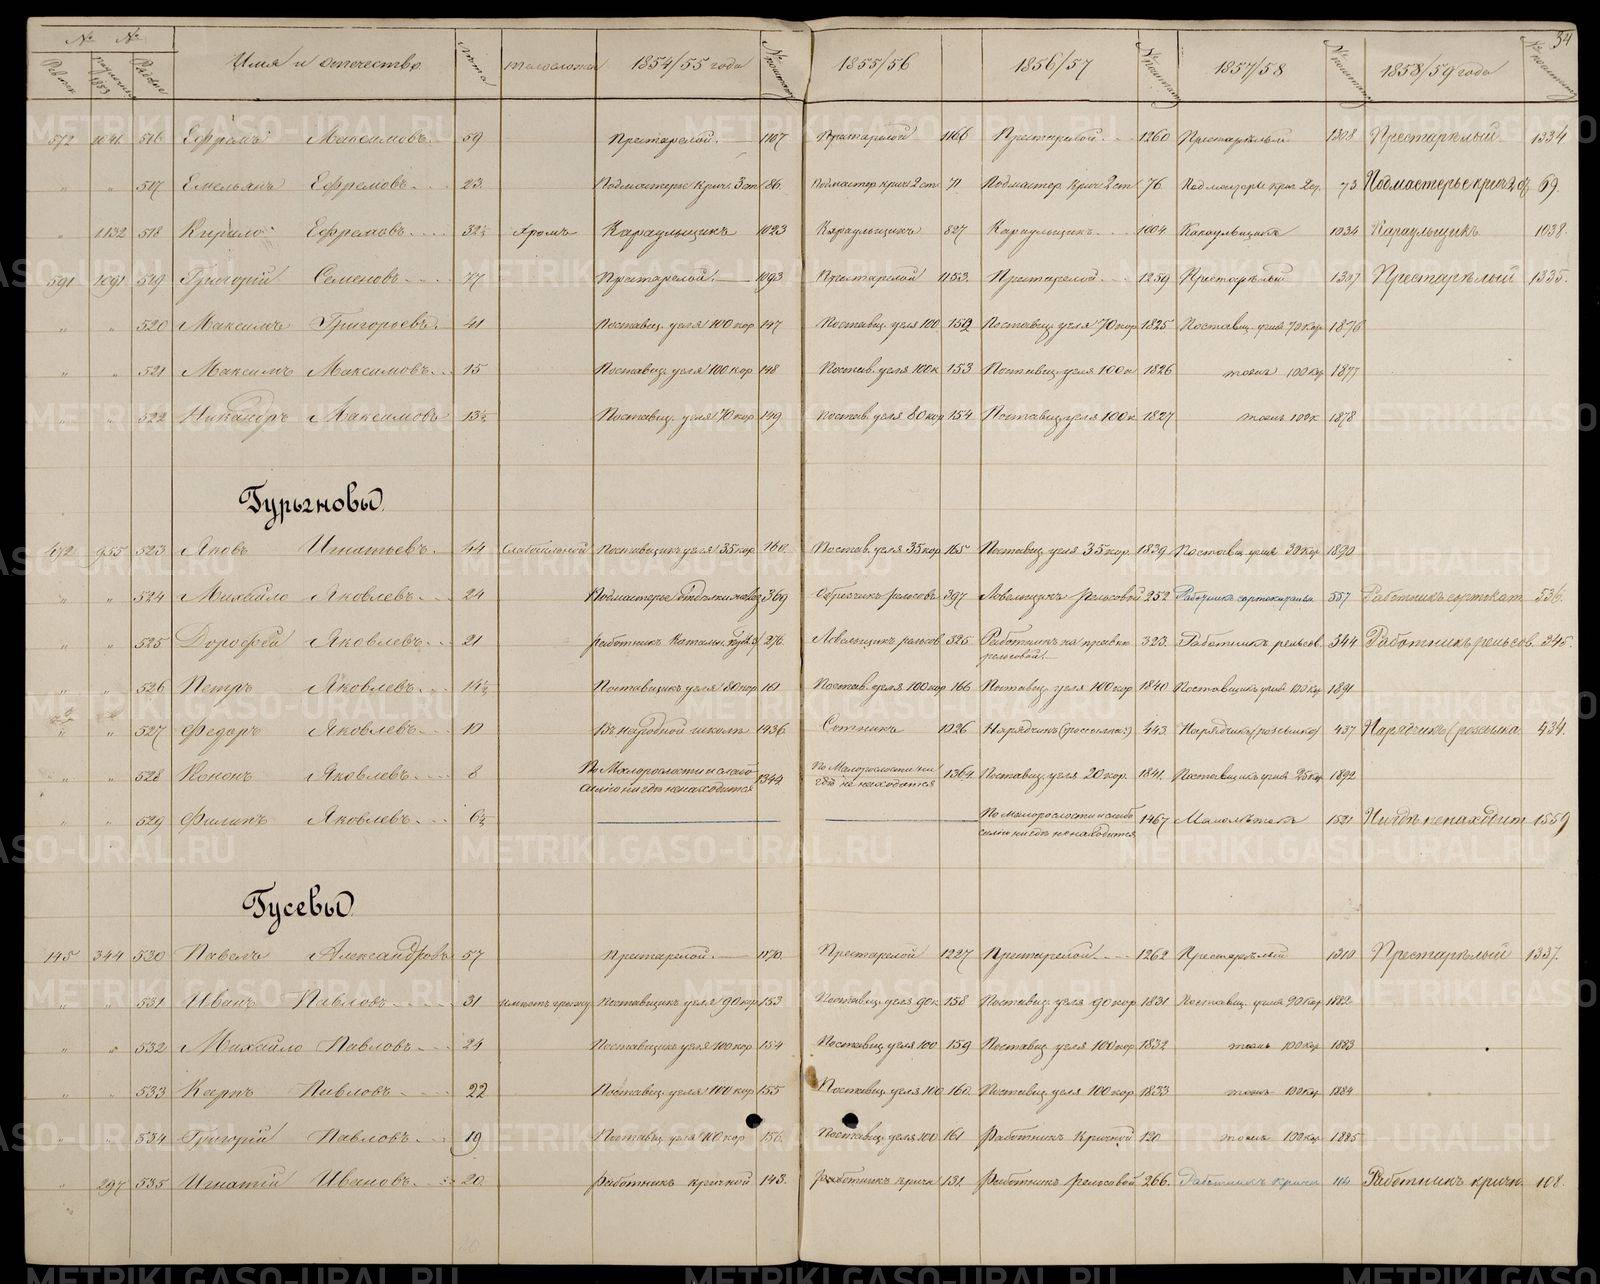 34
№ № Имя и отечество Лѣта телосложен 1854/55 года 1855/56 1856/57 1857/58 1858/59 года
572 1041 516 Ефремъ Максимовъ 59 Престарелой 1107 Престарелой 1166 Престарелой 1260 Престарелый 1308 Престарѣлый 1334
" " 517 Емельянъ Ефремовъ 23 Подмастерье крич. 3 ст 86 Подмастер. крич 2 ст 71 Подмастер. Крич 2 ст 76 Подмастерье крич. 2 ст. 73 Подмастерье крич 2 ст 69.
" 1132 518 Кирило Ефремовъ 32½ Хромъ Караульщикъ 1023 Караульщикъ 827 Караульщикъ 1004 Караульщикъ 1034 Караульщикъ 1038.
591 1091 519 Григорій Семеновъ 77 Престарелой 1093 Престарелой 1153 Престарелой 1259 Престарѣлый 1307 Престарѣлый 1335.
" " 520 Максимъ Григорьевъ 41 Поставщ. угля 100 кор 147 Поставщ. угля 100 152 Поставщ. угля 70 кор 1825 Поставщ. угля 70 кор 1876
" " 521 Максимъ Максимовъ 15 Поставщ. угля 100 кор 148 Постав. угля 100 к 153 Поставщ. угля 100 к 1826 тоже 100 кор 1877
" " 522 Никандръ Максимовъ 13½ Поставщ. угля 70 кор 149 Постав. угля 80 кор 154 Поставщ. угля 100 к 1827 тоже 100 к 1878
Гурьяновы
472 955 523 Яковъ Игнатьевъ 44 Слабосильной Поставщикъ угля 35 кор 160 Постав. угля 35 кор 165 Поставщ угля 35 кор. 1839 Поставщ угля 30 кор 1890
" " 524 Михайло Яковлевъ 24 Подмастерье 369 Обрезчикъ рельсовъ 397 Ловельщикъ Рельсовой 252 Работникъ сортокатал. 557 Работникъ сортокат 536.
" " 525 Дорофей Яковлевъ 21 Работникъ Катальн. 276. Ловельщикъ рельсов 325 Работникъ на правке рельсовой 323. Работникъ рельсов. 344 Работникъ рельсов. 345.
" " 526 Петръ Яковлевъ 14½ Поставщикъ угля 80 кор 161 Постав. угля 100 кор 166 Поставщ. угля 100 кор 1840 Поставщикъ угля 100 кор 1891
" " 527 Федоръ Яковлевъ 10 Въ народной школе 1436 Сотникъ 1026 Нарядчикъ (россылка) 443. Нарядчикъ (россылка) 437 Нарядчикъ (россылка 434.
" " 528 Кононъ Яковлевъ 8 По Малорослости и слабосилию нигде не находится 1344 По Малорослости нигде не находится 1364 Поставщ. угля 20 кор. 1841 Поставщикъ угля 25 кор 1892
" " 529 Филипъ Яковлевъ 6½ По малорослости и слабосилию нигде не находится 1467 Малолѣтенъ 1521 Нигдѣ ненаходит 1559
Гусевы
145 344 530 Павелъ Александровъ 57 Престарелой 1170. Престарелой 1227 Престарелой 1262 Престарѣлый 1310 Престарѣлый 1337.
" " 531 Иванъ Павловъ 31 имеетъ грыжу Поставщикъ угля 90 кор 153 Поставщ. угля 90 к 158 Поставщ. угля 90 кор 1831 Поставщ. угля 90 кор 1882
" " 532 Михайло Павловъ 24 Поставщикъ угля 100 кор 154 Поставщ угля 100 159 Поставщ угля 100 кор 1832 тоже 100 кор 1883
" " 533 Карпъ Павловъ 22 Поставщ. угля 100 кор 155 Поставщ. угля 100 160. Поставщ. угля 100 кор 1833 тоже 100 кор 1884
" " 534 Григорій Павловъ 19 Поставщ угля 100 кор 156. Поставщ. угля 100 161 Работникъ Кричной 120 тоже 100 кор 1885
" 297 535 Игнатій Ивановъ 20. Работникъ кричной 143. Работникъ крич 131. Работникъ рельсовой 266. Работникъ кричн 114 Работникъ кричн. 108.
METRIKI.GASO-URAL.RU